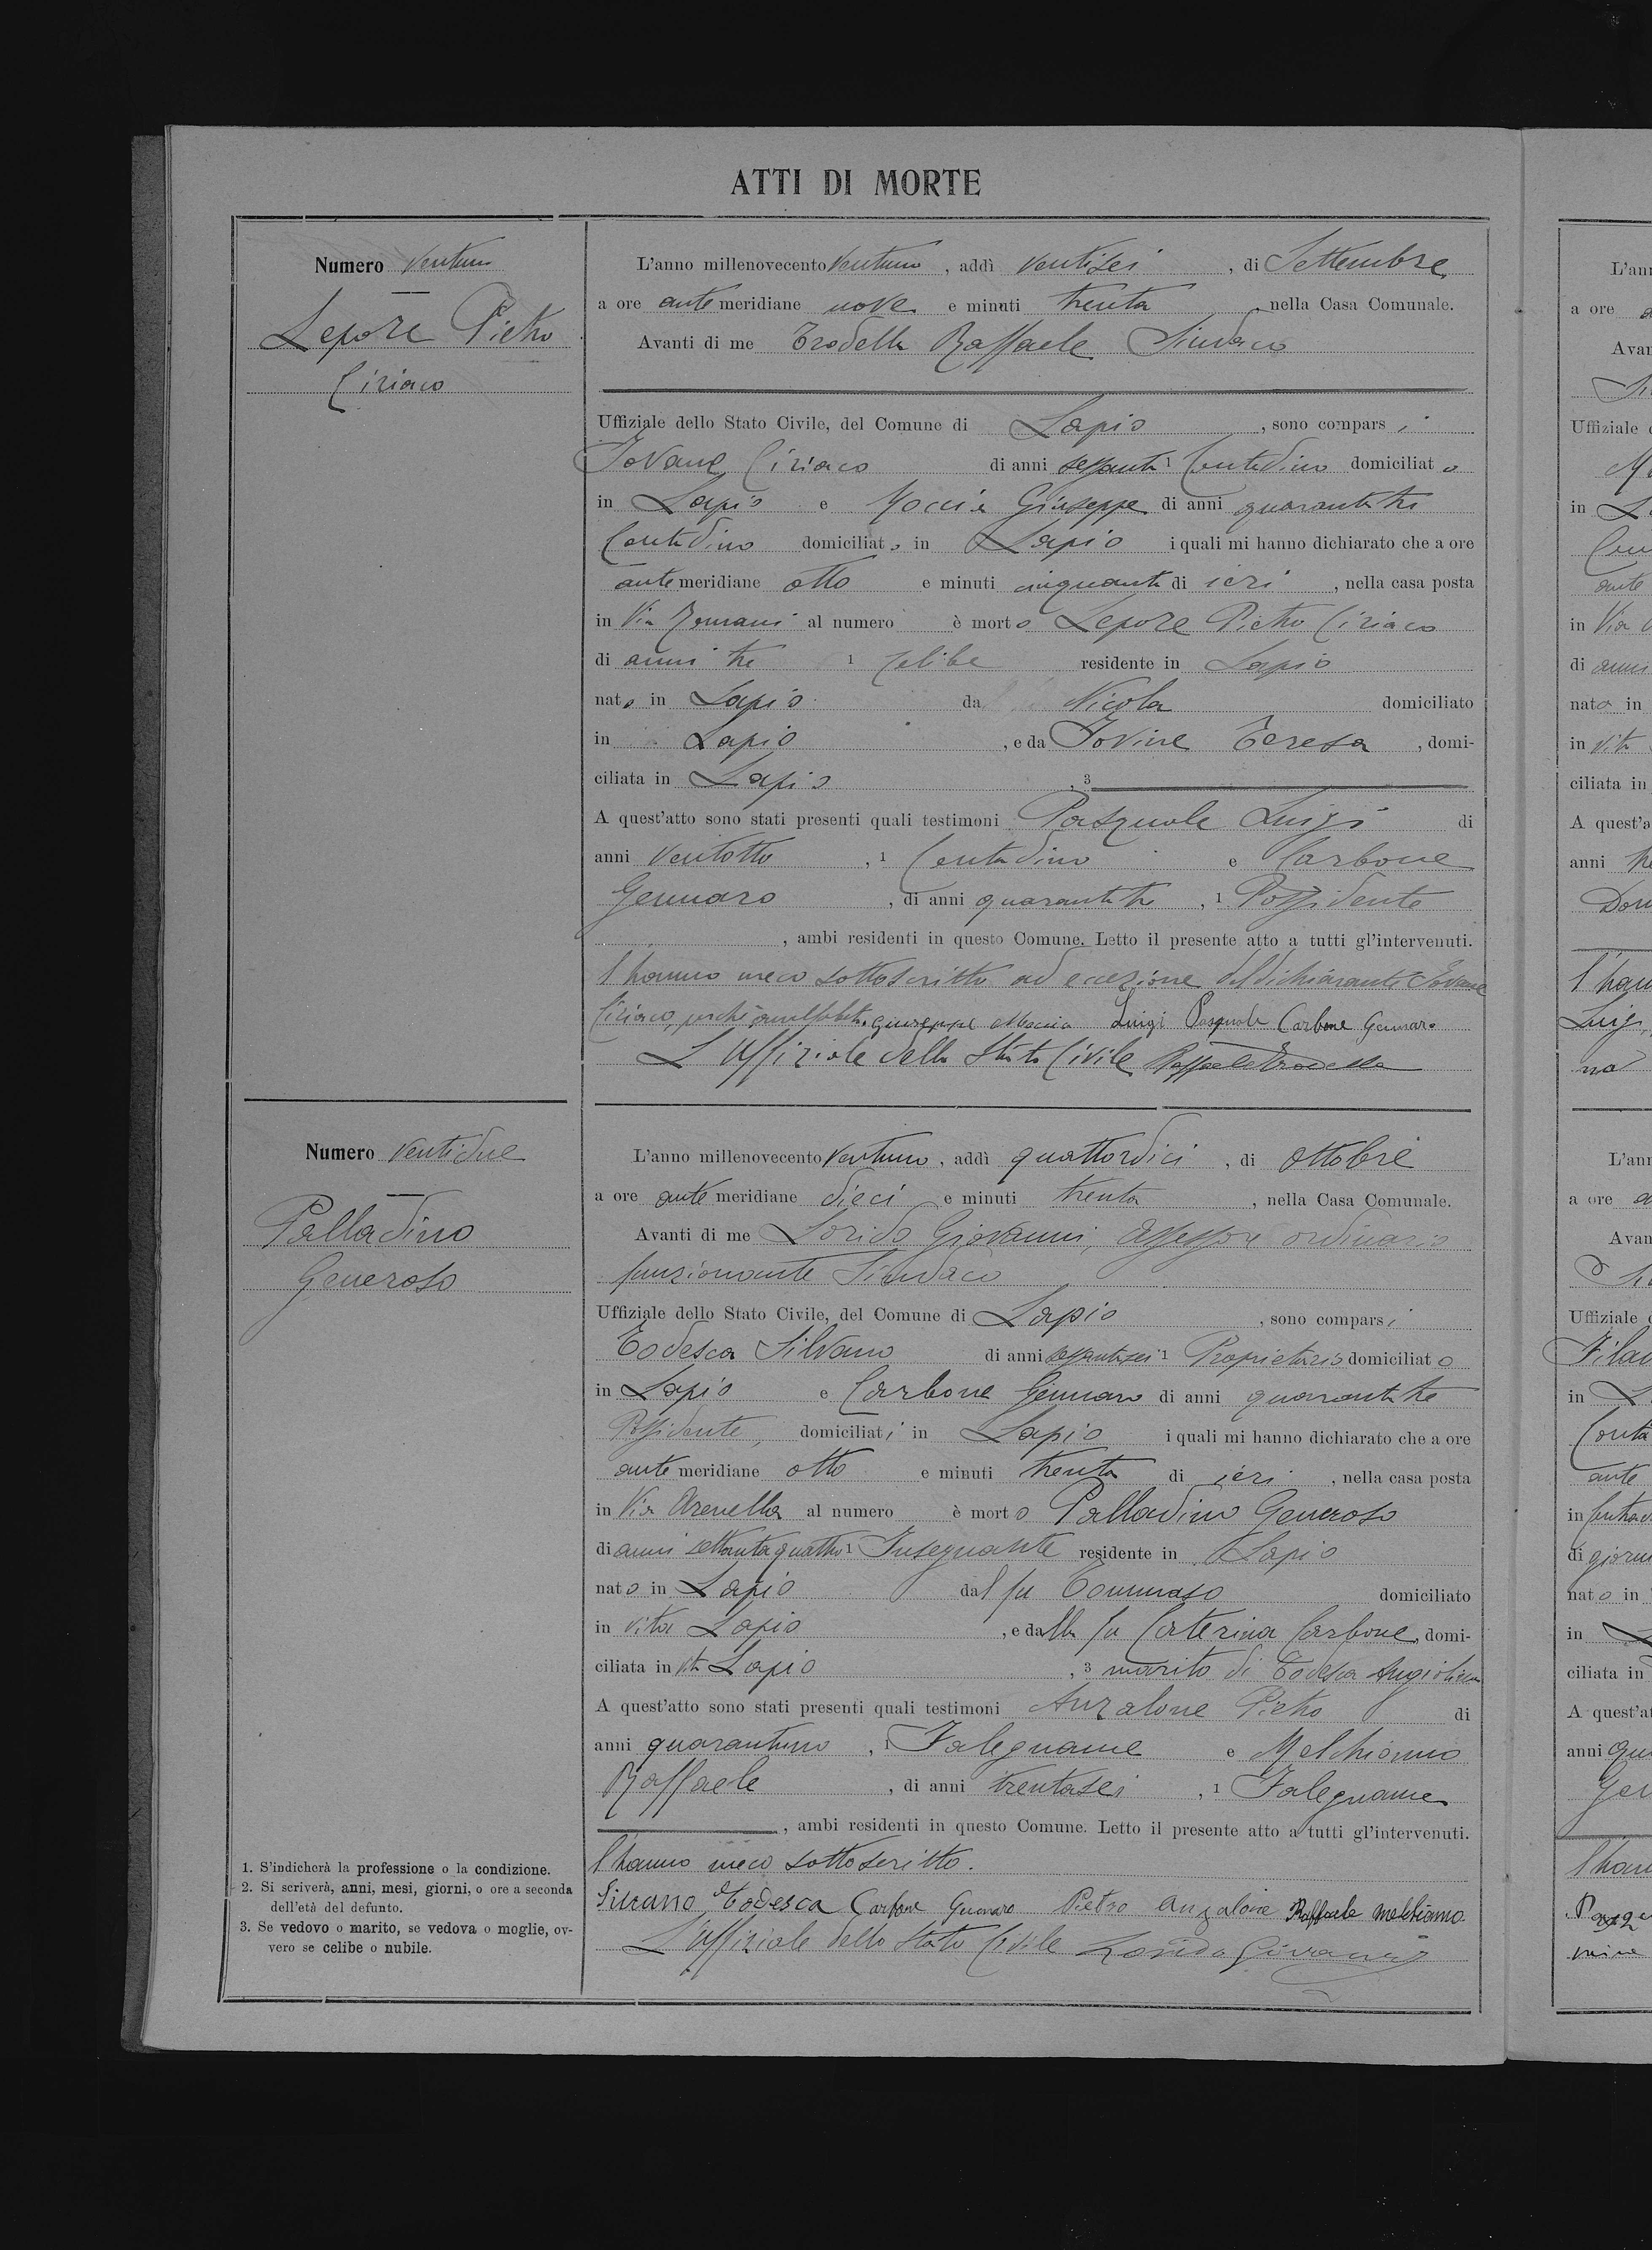 ATTI DI MORTE
Numero Ventuno
Lepore Pietro
Ciriaco
L'anno millenovecento Ventuno, addì Ventisei, di Settembre
a ore antemeridiane nove e minuti trenta, nella Casa Comunale.
Avanti di me Trodella Raffaele Sindaco
Uffiziale dello Stato Civile, del Comune di Lapio, sono comparsi
Iovane Ciriaco di anni sessanta 1 Contadino domiciliato
in Lapio e Moccia Giuseppe di anni quarantatre
Contadino domiciliato in Lapio i quali mi hanno dichiarato che a ore
antemeridiane otto e minuti cinquanta di ieri, nella casa posta
in Via Romani al numero è morto Lepore Pietro Ciriaco
di anni tre 1 Celibe residente in Lapio
nato in Lapio da Nicola domiciliato
in Lapio, e da Iovine Teresa, domi-
ciliata in Lapio, 3
A quest'atto sono stati presenti quali testimoni Pasquale Luigi di
anni Ventotto, 1 Contadino e Carbone
Gennaro, di anni quarantatre, 1 Possidente
, ambi residenti in questo Comune. Letto il presente atto a tutti gl'intervenuti.
l'hanno meco sottoscritto ad eccezione del dichiarante Iovane
Ciriaco, perchè analfabeta. Giuseppe Moccia Luigi Pasquale Carbone Gennaro
L'Uffiziale dello Stato Civile Raffaele Trodella
Numero Ventidue
Palladino
Generoso
L'anno millenovecento Ventuno, addì quattordici, di Ottobre
a ore antemeridiane dieci e minuti trenta, nella Casa Comunale.
Avanti di me Lorido Giovanni, assessore ordinario
funzionante Sindaco
Uffiziale dello Stato Civile, del Comune di Lapio, sono comparsi
Todesca Silvano di anni sessantasei 1 Proprietario domiciliato
in Lapio e Carbone Gennaro di anni quarantatre
Possidente, domiciliati in Lapio i quali mi hanno dichiarato che a ore
antemeridiane otto e minuti trenta di ieri, nella casa posta
in Via Arenella al numero è morto Palladino Generoso
di anni settantaquattro 1 Insegnante residente in Lapio
nato in Lapio dal fu Tommaso domiciliato
in vita Lapio, e dalla fu Caterina Carbone, domi-
ciliata in vita Lapio, 3 marito di Todesca Angiolina
A quest'atto sono stati presenti quali testimoni Anzalone Pietro di
anni quarantuno, 1 Falegname e Melchionno
Raffaele, di anni trentasei, 1 Falegname
, ambi residenti in questo Comune. Letto il presente atto a tutti gl'intervenuti.
l'hanno meco sottoscritto.
Silvano Todesca Carbone Gennaro Pietro Anzalone Raffaele Melchionno
L'Uffiziale dello Stato Civile Lorido Giovanni
1. S'indicherà la professione o la condizione.
2. Si scriverà, anni, mesi, giorni, o ore a seconda
dell'età del defunto.
3. Se vedovo o marito, se vedova o moglie, ov-
vero se celibe o nubile.